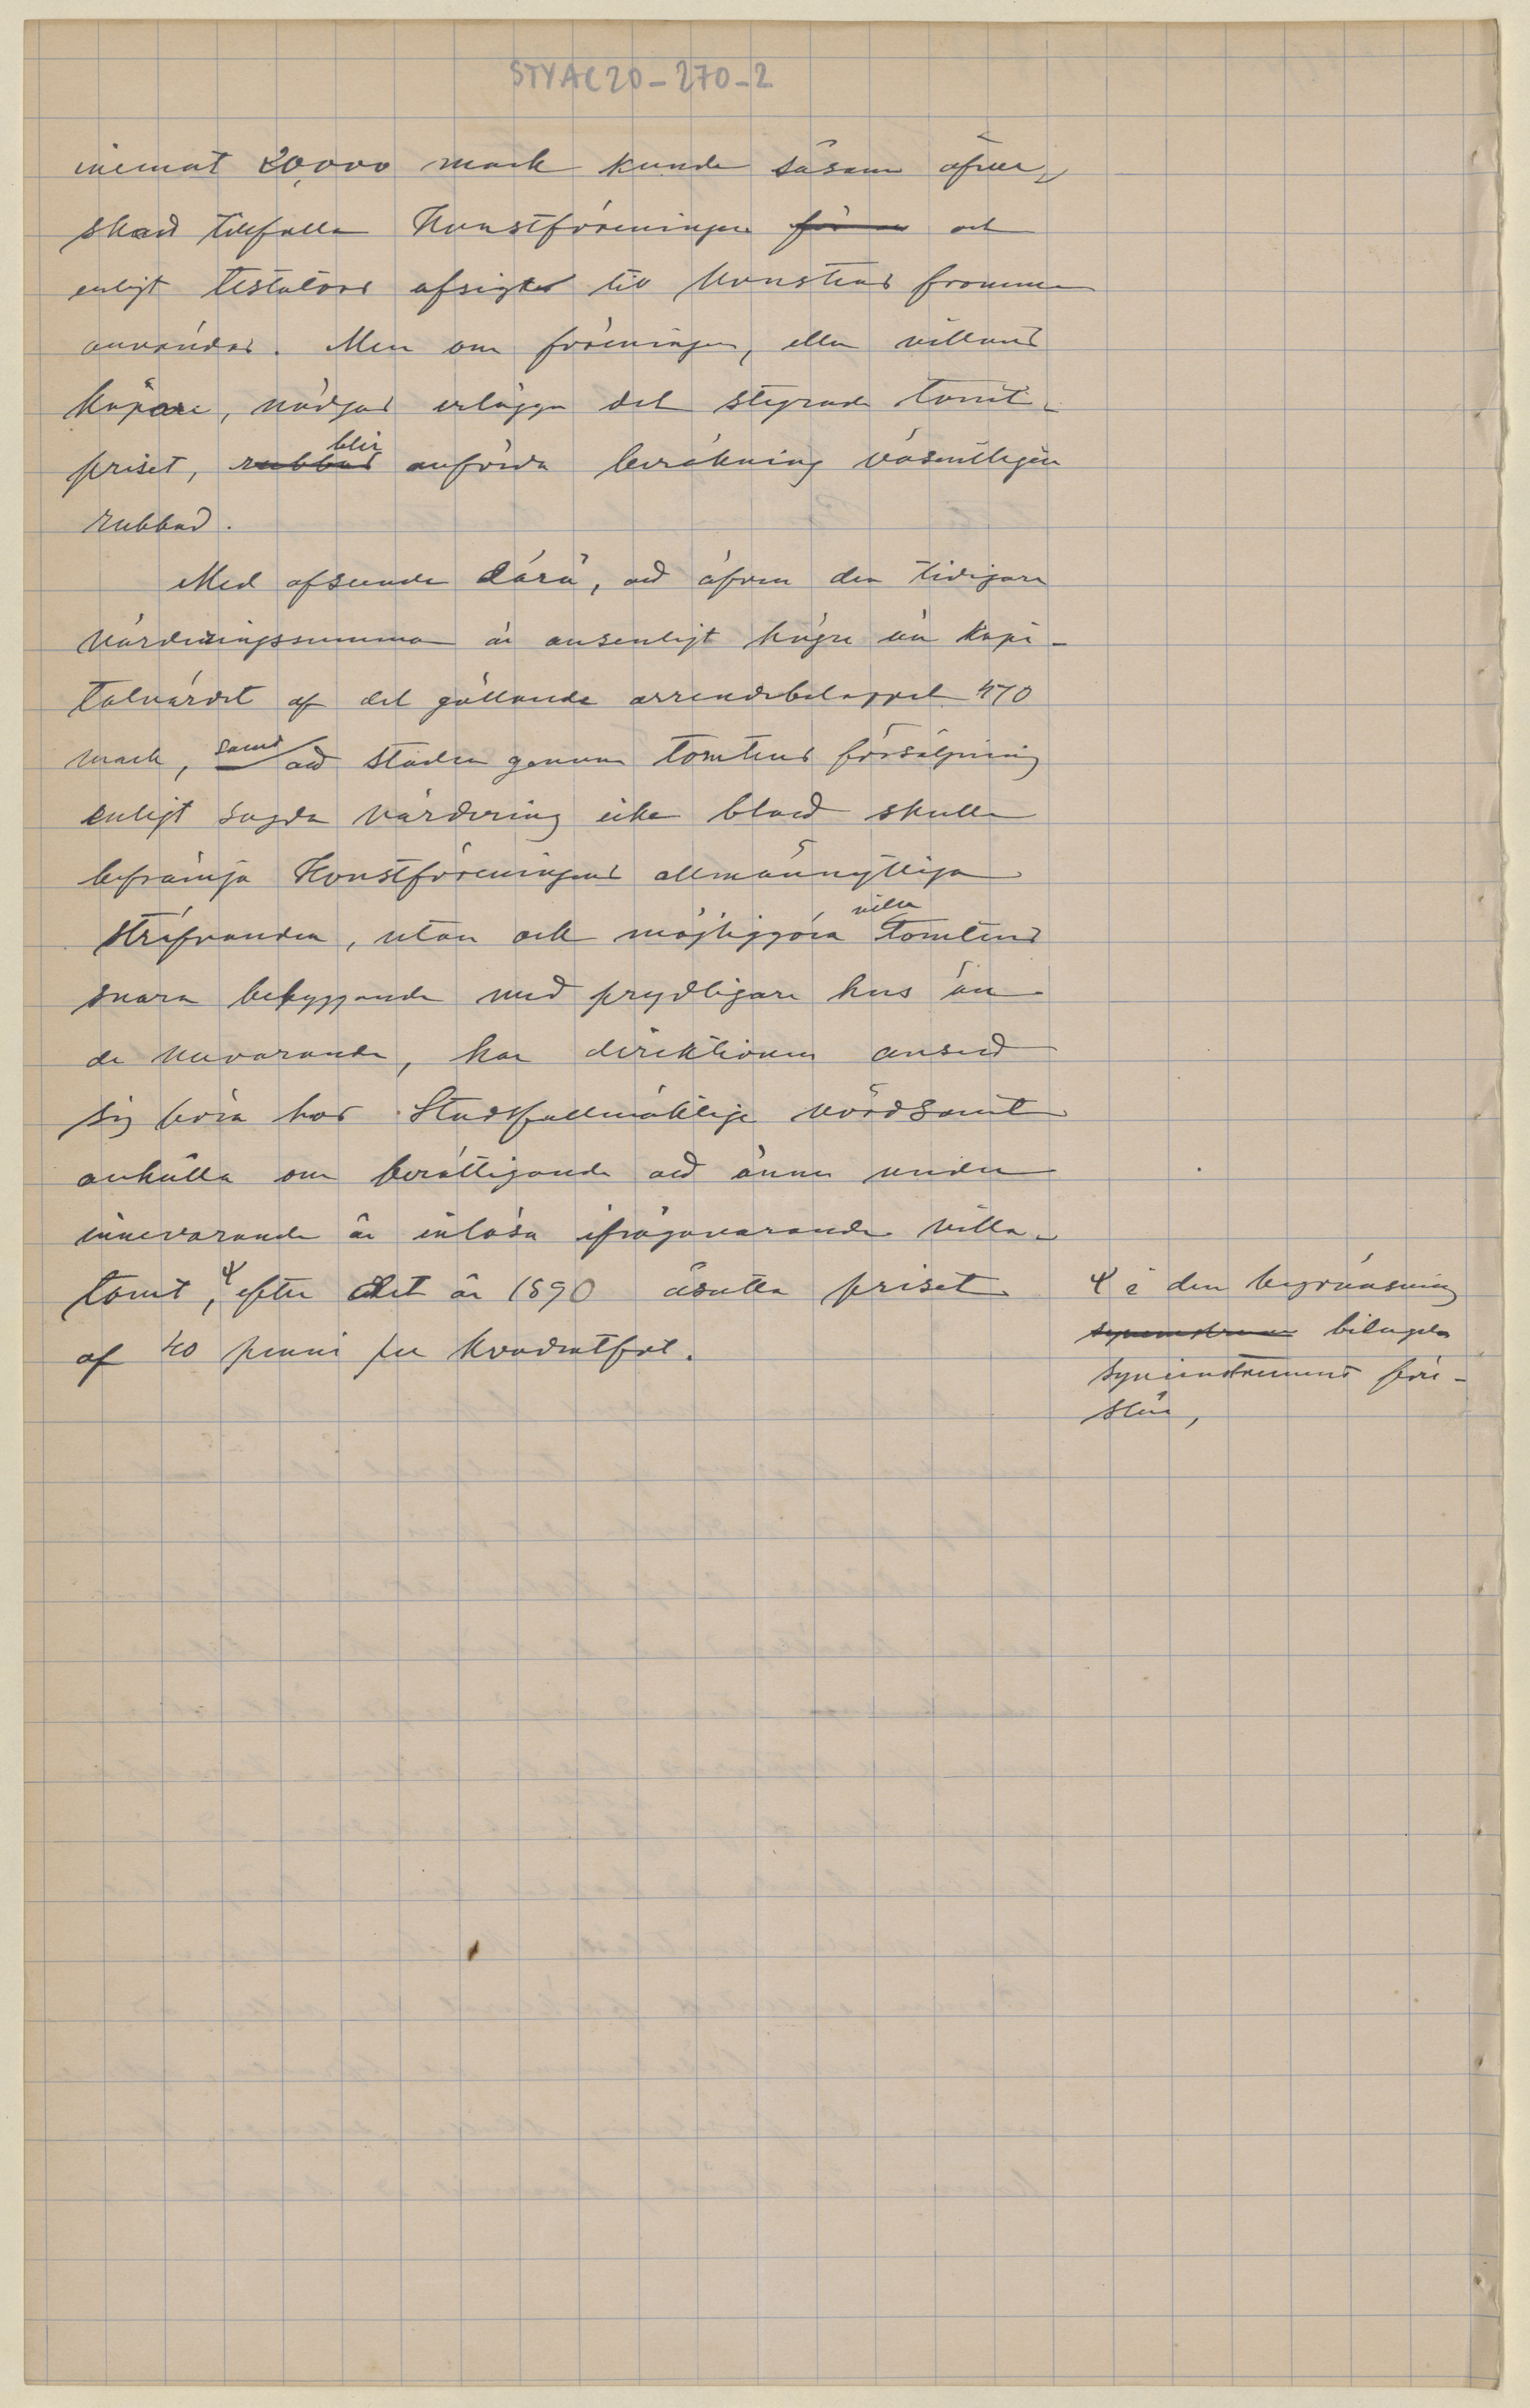 STYAC20-270-2
inemot 20,000 mark kunde såsom öfver-
skott tillfalla Konstföreningen för en och
enligt testators afsigter till konstens fromma
användas. Men om föreningen, eller villans
köpare, nödgas erlägga det stegrade tomt-
priset, rubbas blir anförda beräkning väsentligen
rubbad.
Med afseende därå, att äfven den tidigare
värderingssumman är ansenligt högre än kapi-
talvärdet af det gällande arrendebeloppet 470
mark, samt att staden genom tomtens försäljning
enligt sagda värdering icke blott skulle
befrämja Konstföreningens allmännyttiga
sträfvanden, utan ock möjliggöra villa tomtens
snara bebyggande med prydligare hus än
de nuvarande, har direktionen ansett
sig böra hos Stadsfullmäktige vördsamt
anhålla om berättigande att ännu under
innevarande år inlösa ifrågavarande villa-
tomt, efter det år 1890 åsatta priset
af 40 penni per kvadratfot.
i den begränsning
bilagda
syneinstrument före-
slår,